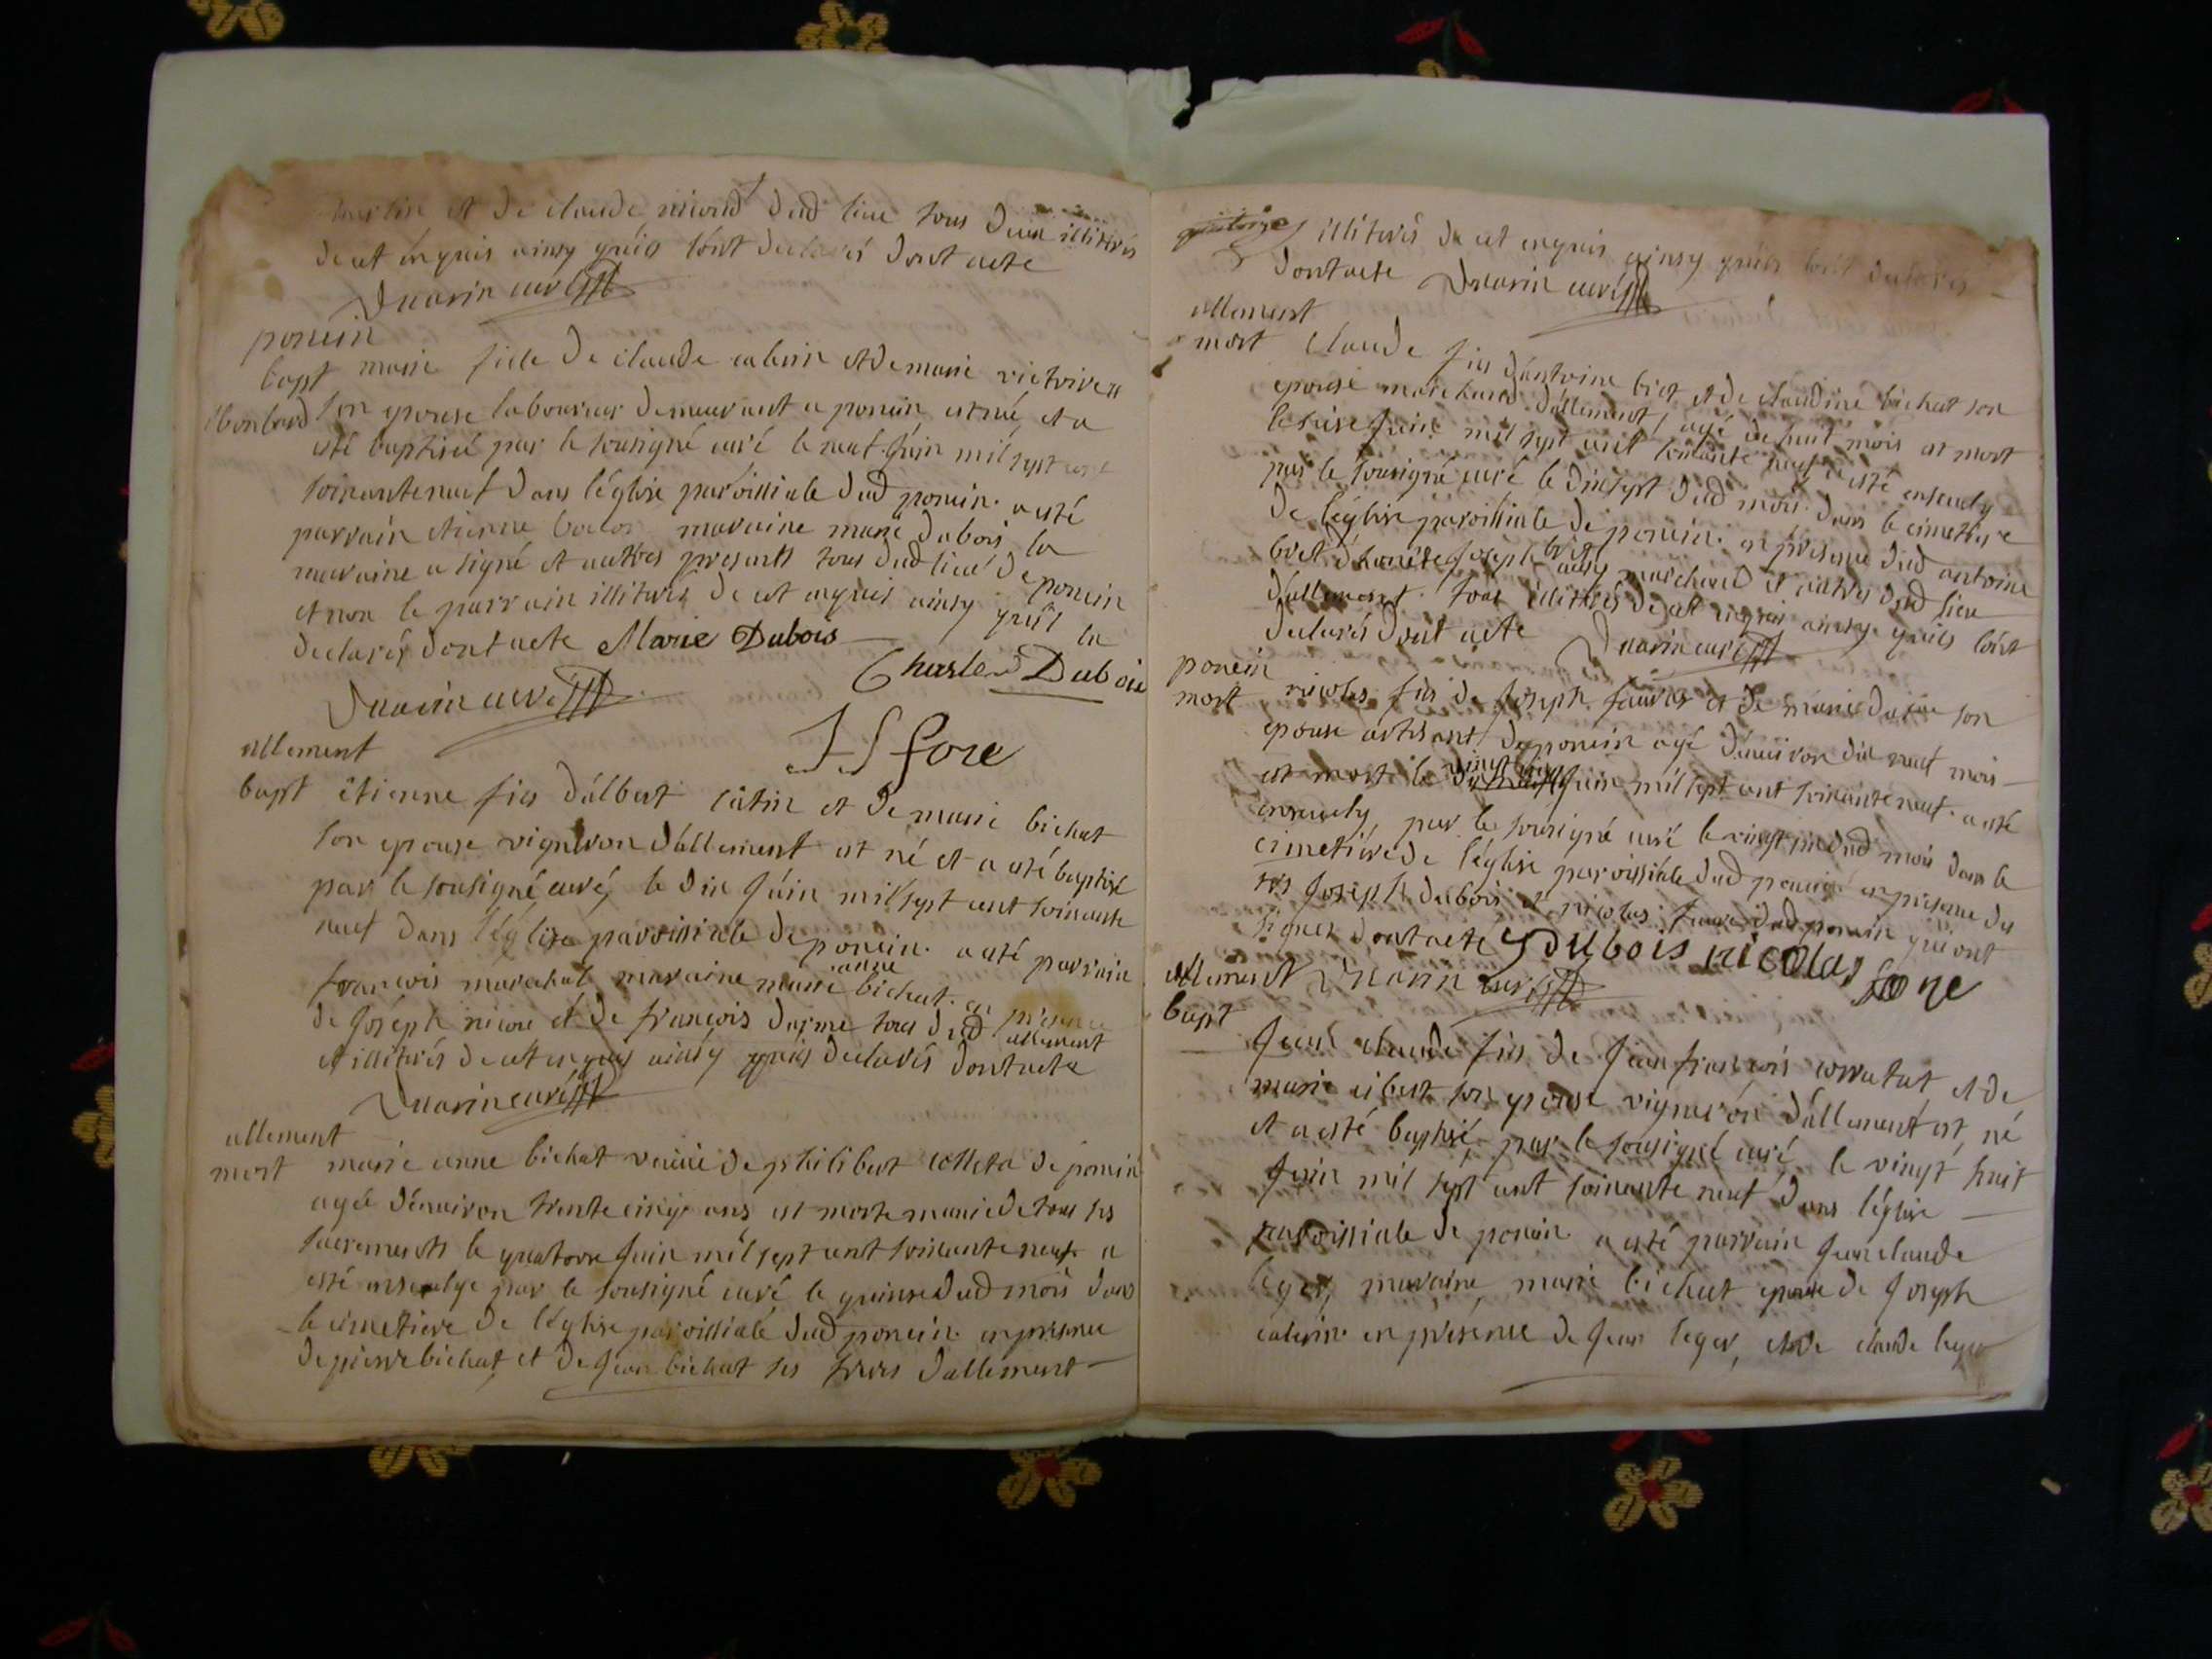 et de claude dud lieu tous deux illiterés
de cet enquis ainsy qu'ils l'ont declarés dont acte
Duarin curé
poncin
bapt marie fille de claude caberin et de marie
son epouse laboureur demeurant a poncin est née et a
esté baptisée par le sousigné curé le neuf juin mil sept cent
soixante neuf dans l'église paroissiale dud poncin. a esté
parrain etienne maraine marie dubois la
maraine a signé et autres presents tous dud lieu de poncin
et non le parrain illiterés de cet enquis ainsy qu'il la
declarés dont acte Marie Dubois
Charles Dubois
Duarin curé
fore
allement
bapt êtienne fils d'albert câtin et de marie bichat
son epouse vigneron d'allement est né et a esté baptisé
par le sousigné curé, le dix juin mil sept cent soixante
neuf dans l'église paroissiale de poncin. a esté parrain
francois marechal maraine marie anne bichat. en presence
de joseph et de françois tous dud allement
et illiterés de cet enquis ainsy qu'ils declarés dont acte
Duarin curé
allement
mort marie anne bichat veuve de philibert de poncin
agée d'environ trente cinq ans est morte munie de tous ses
sacrements le quatorse juin mil sept cent soixante neuf a
esté par le sousigné curé le quinse dud mois dans
le cimetiere de l'église paroissiale dud poncin. en presence
de pierre bichat et de jean bichat ses freres d'allement
illiterés de cet enquis ainsy qu'ils l'ont declarés
dont acte Duarin curé
allement
mort claude fils d'antoine bret et de claudine bichat son
epouse marchand d'allement agé de huit mois est mort
le seise juin mil sept cent soixante neuf a esté ensevely
par le sousigné curé le dixsept dud mois dans le cimetiere
de l'église paroissiale de poncin. en presence dud antoine
bret joseph bret aussy marchand et autres dud lieu
d'allement. tous illiterés de cet enquis ainsy qu'ils l'ont
declarés dont acte Duarin curé
poncin
mort nicolas fils de joseph et de marie son
epouse artisant de poncin agé d'environ dix neuf mois
est mort le vingt juin mil sept cent soixante neuf. a esté
ensevely par le sousigné curé le vingt dud mois dans le
cimetiere de l'église paroissiale dud poncin en presence du
joseph dubois et nicolas dud poncin qui ont
signés dont acte Dubois nicolas fore
allement Duarin curé
bapt
jean claude fils de jean françois corratat et de
marie son epouse vigneron d'allement est né
et a esté baptisé par le sousigné curé le vingt huit
juin mil sept cent soixante neuf dans l'église
paroissiale de poncin a esté parrain jean claude
leger, maraine, marie bichat epouse de joseph
caberin en presence de jean leger, et de claude leger